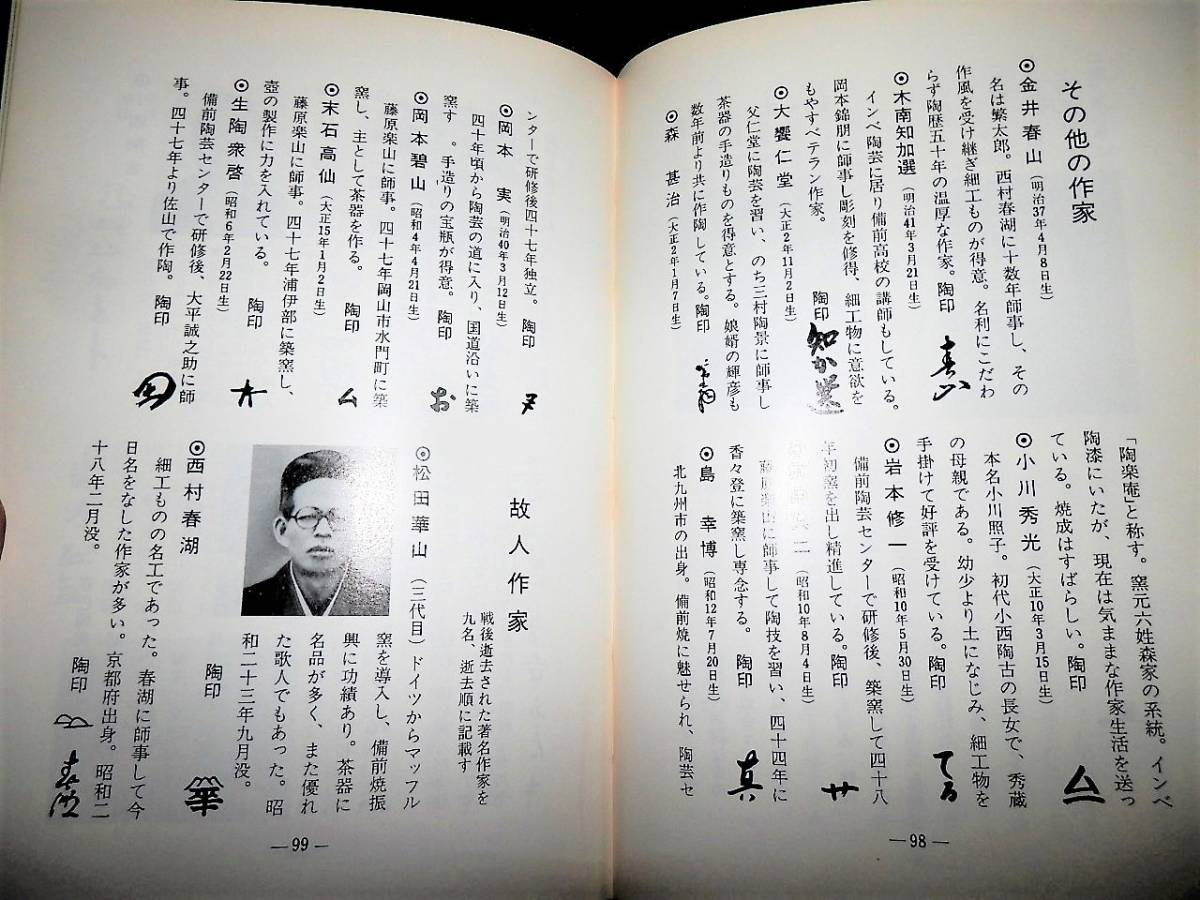 その他の作家
◎金井春山（明治37年4月8日生）
名は繁太郎。西村春湖に十数年師事し、その
作風を受け継ぎ細工ものが得意。名利にこだわ
らず陶歴五十年の温厚な作家。陶印
◎木南知加選（明治41年3月21日生）
インベ陶芸に居り備前高校の講師もしている。
岡本錦朋に師事し彫刻を修得、細工物に意欲を
もやすベテラン作家。　陶印
知か選
◎大饗仁堂（大正2年11月2日生）
父仁堂に陶芸を習い、のち三村陶景に師事し
茶器の手造りものを得意とする。娘婿の輝彦も
数年前より共に作陶している。陶印
◎森　甚治（大正2年1月7日生）
「陶楽庵」と称す。窯元六姓森家の系統。インベ
陶漆にいたが、現在は気ままな作家生活を送っ
ている。焼成はすばらしい。陶印
◎小川秀光（大正10年3月15日生）
本名小川照子。初代小西陶古の長女で、秀蔵
の母親である。幼少より土になじみ、細工物を
手掛けて好評を受けている。陶印
てる
◎岩本修一（昭和10年5月30日生）
備前陶芸センターで研修後、築窯して四十八
年初窯を出し精進している。陶印
サ
二（昭和10年8月4日生）
藤原楽山に師事して陶技を習い、四十四年に
香々登に築窯し専念する。　陶印
真
◎島　幸博（昭和12年7月20日生）
北九州市の出身。備前焼に魅せられ、陶芸セ
―98―
ンターで研修後四十七年独立。　陶印
◎岡本　実（明治40年3月12日生）
四十年頃から陶芸の道に入り、国道沿いに築
窯す　。手造りの宝瓶が得意。　陶印
お
◎岡本碧山（昭和4年4月21日生）
藤原楽山に師事。四十七年岡山市水門町に築
窯し、主として茶器を作る。　陶印
ム
◎末石高仙（大正15年1月2日生）
藤原楽山に師事。四十七年浦伊部に築窯し、
壺の製作に力を入れている。　陶印
◎生陶衆啓（昭和6年2月22日生）
備前陶芸センターで研修後、大平誠之助に師
事。四十七年より佐山で作陶。　陶印
故人作家
戦後逝去された著名作家を
九名、逝去順に記載す
◎松田華山（三代目）ドイツからマッフル
窯を導入し、備前焼振
興に功績あり。茶器に
名品が多く、また優れ
た歌人でもあった。昭
和二十三年九月没。
陶印
◎西村春湖
細工ものの名工であった。春湖に師事して今
日名をなした作家が多い。京都府出身。昭和二
十八年二月没。　陶印
春湖
―99―